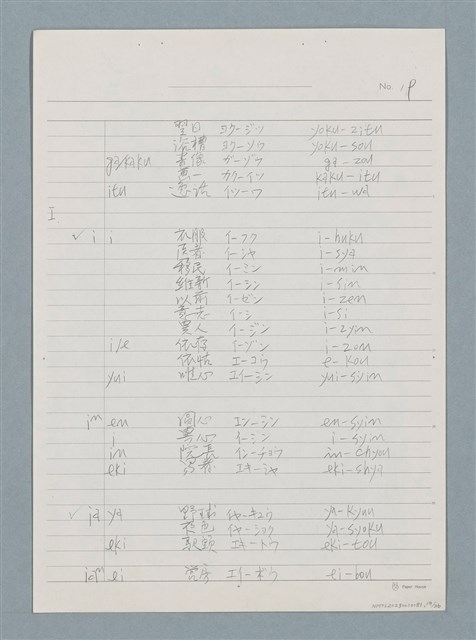 No. 19
翌日 ヨクージツ yoku-zitu
浴槽 ヨクーソウ yoku-sou
ga/kaku ガーゾウ ga-zou
万一 カクーイツ kaku-itu
itu 逸話 イツーワ itu-wa
I
✓ i i 衣服 イーフク i-huku
医者 イーシャ i-sya
移民 イーミン i-min
維新 イーシン i-sin
以前 イーゼン i-zen
意志 イーシ i-si
異人 イージン i-zyin
i/e 依存 イーゾン i-zon
依怙 エーコウ e-kou
yui 唯心 ユイーシン yui-syin
im en 円心 エンーシン en-syin
i 異心 イーシン i-syin
in 院長 インーチョウ in-chyou
eki 易者 エキーシャ eki-shya
✓ ia ya 野球 ヤーキュウ ya-kyuu
夜色 ヤーショク ya-syoku
eki 駅頭 エキートウ eki-tou
iam ei 営房 エイーボウ ei-bou
Paper House